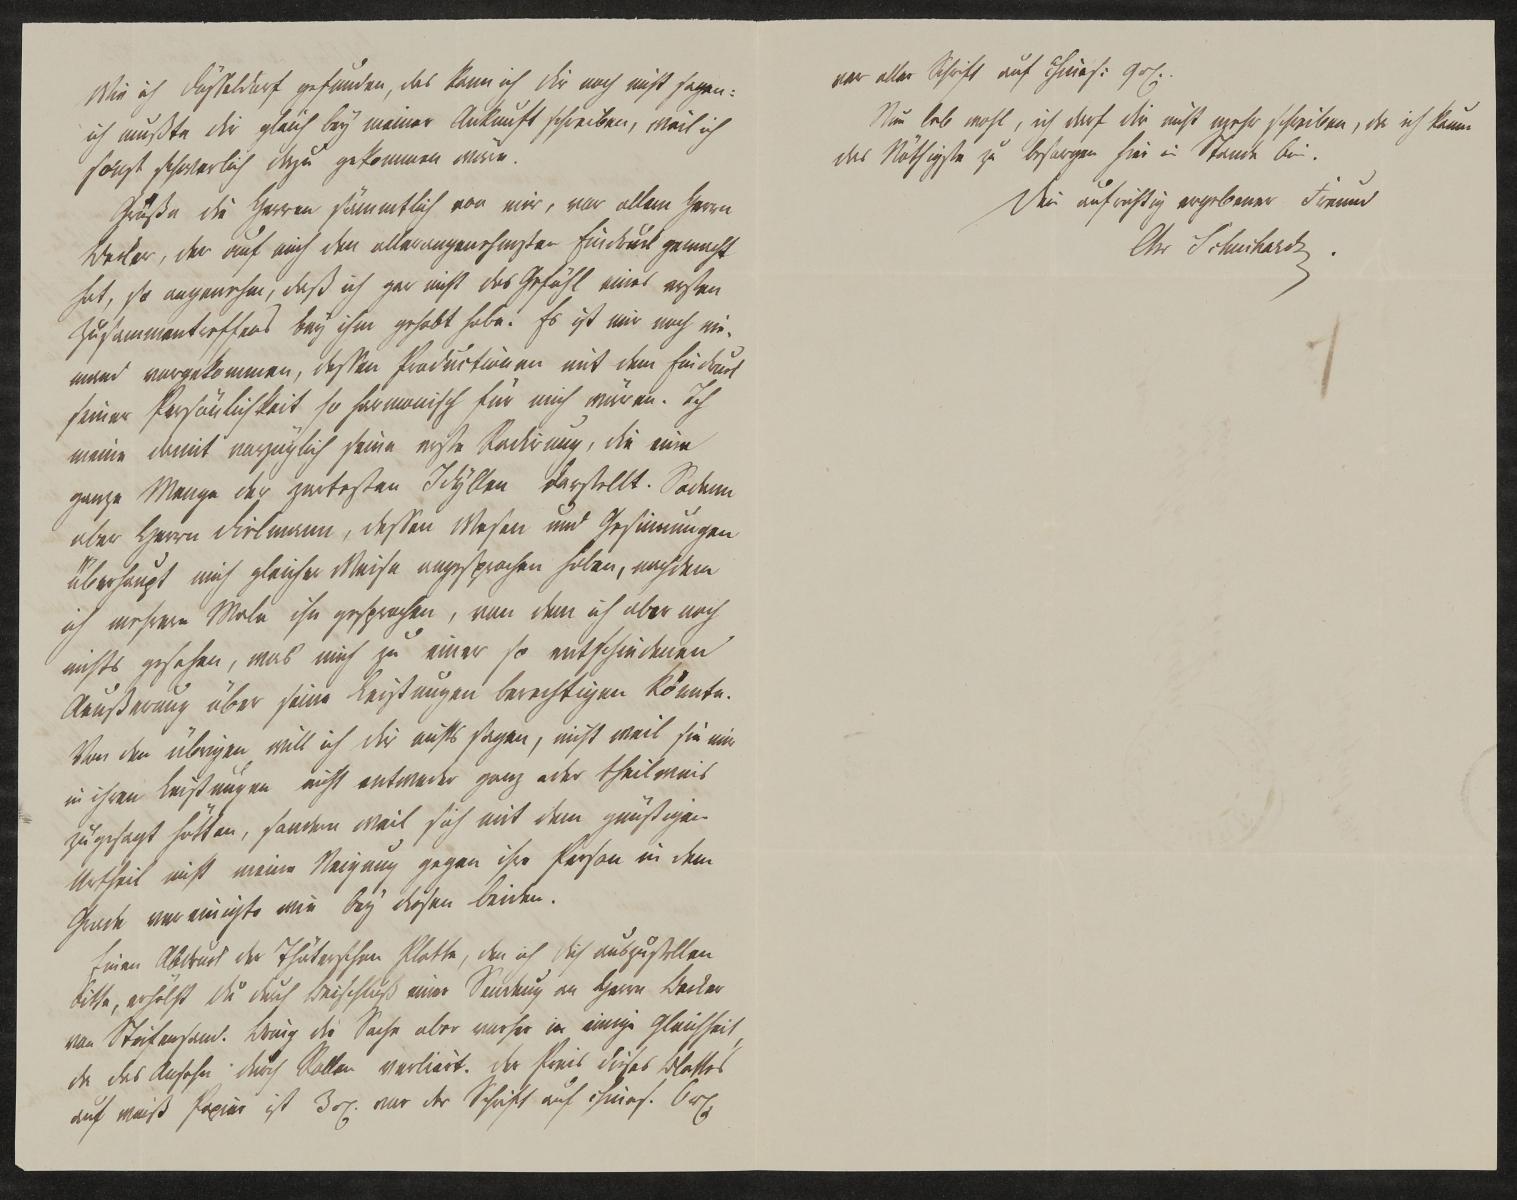 Wie ich Düsseldorf gefunden, das kann ich dir noch nicht sagen:
ich mußte dir gleich bey meiner Ankunft schreiben, weil ich
sonst schwerlich dazu gekommen wäre.
Grüße die Herren sämmtlich von mir, vor allem Herrn
Becker, der auf mich den allerangenehmsten Eindruck gemacht
hat, so angenehm, daß ich gar nicht das Gefühl eines ersten
Zusammentreffens bey ihm gehabt habe. Es ist mir noch nie-
mand vorgekommen, dessen Productionen mit dem Eindruck
seiner Persönlichkeit so harmonisch für mich wären. Ich
meine damit vorzüglich seine erste Radirung, die eine
ganze Menge der zartesten Idyllen darstellt. Sodann
aber Herrn Dielmann, dessen Wesen und Gesinnungen
überhaupt mich gleicher Weise angesprochen haben, nachdem
ich mehrere Male ihn gesprochen, von dem ich aber noch
nichts gesehen, was mich zu einer so entschiedenen
Aeußerung über seine Leistungen berechtigen könnte.
Von den übrigen will ich dir nichts sagen, nicht weil sie mir
in ihren Leistungen nicht entweder ganz oder theilweis
zugesagt hätten, sondern weil sich mit dem günstigen
Urtheil nicht meine Neigung gegen ihre Person in dem
Grade vereinigte wie bey diesen beiden.
Einen Abdruck der Thäterschen Platte, den ich dich auszustellen
bitte, erhälst du durch Beischluß einer Sendung an Herrn Becker
von Steifensand. Bring die Sache aber vorher in einige Gleichheit,
da das Ansehn durch Rollen verliert. Der Preis dieses Blattes
auf weiß Papier ist 3 rℓ. vor der Schrift auf chines. 6 rℓ.
vor aller Schrift auf chines: 9 rℓ.
Nun leb wohl, ich darf dir nicht mehr schreiben, da ich kaum
das Nöthigste zu besorgen hier im Stande bin.
Dein aufrichtig ergebener Freund
Chr Schuchardt.